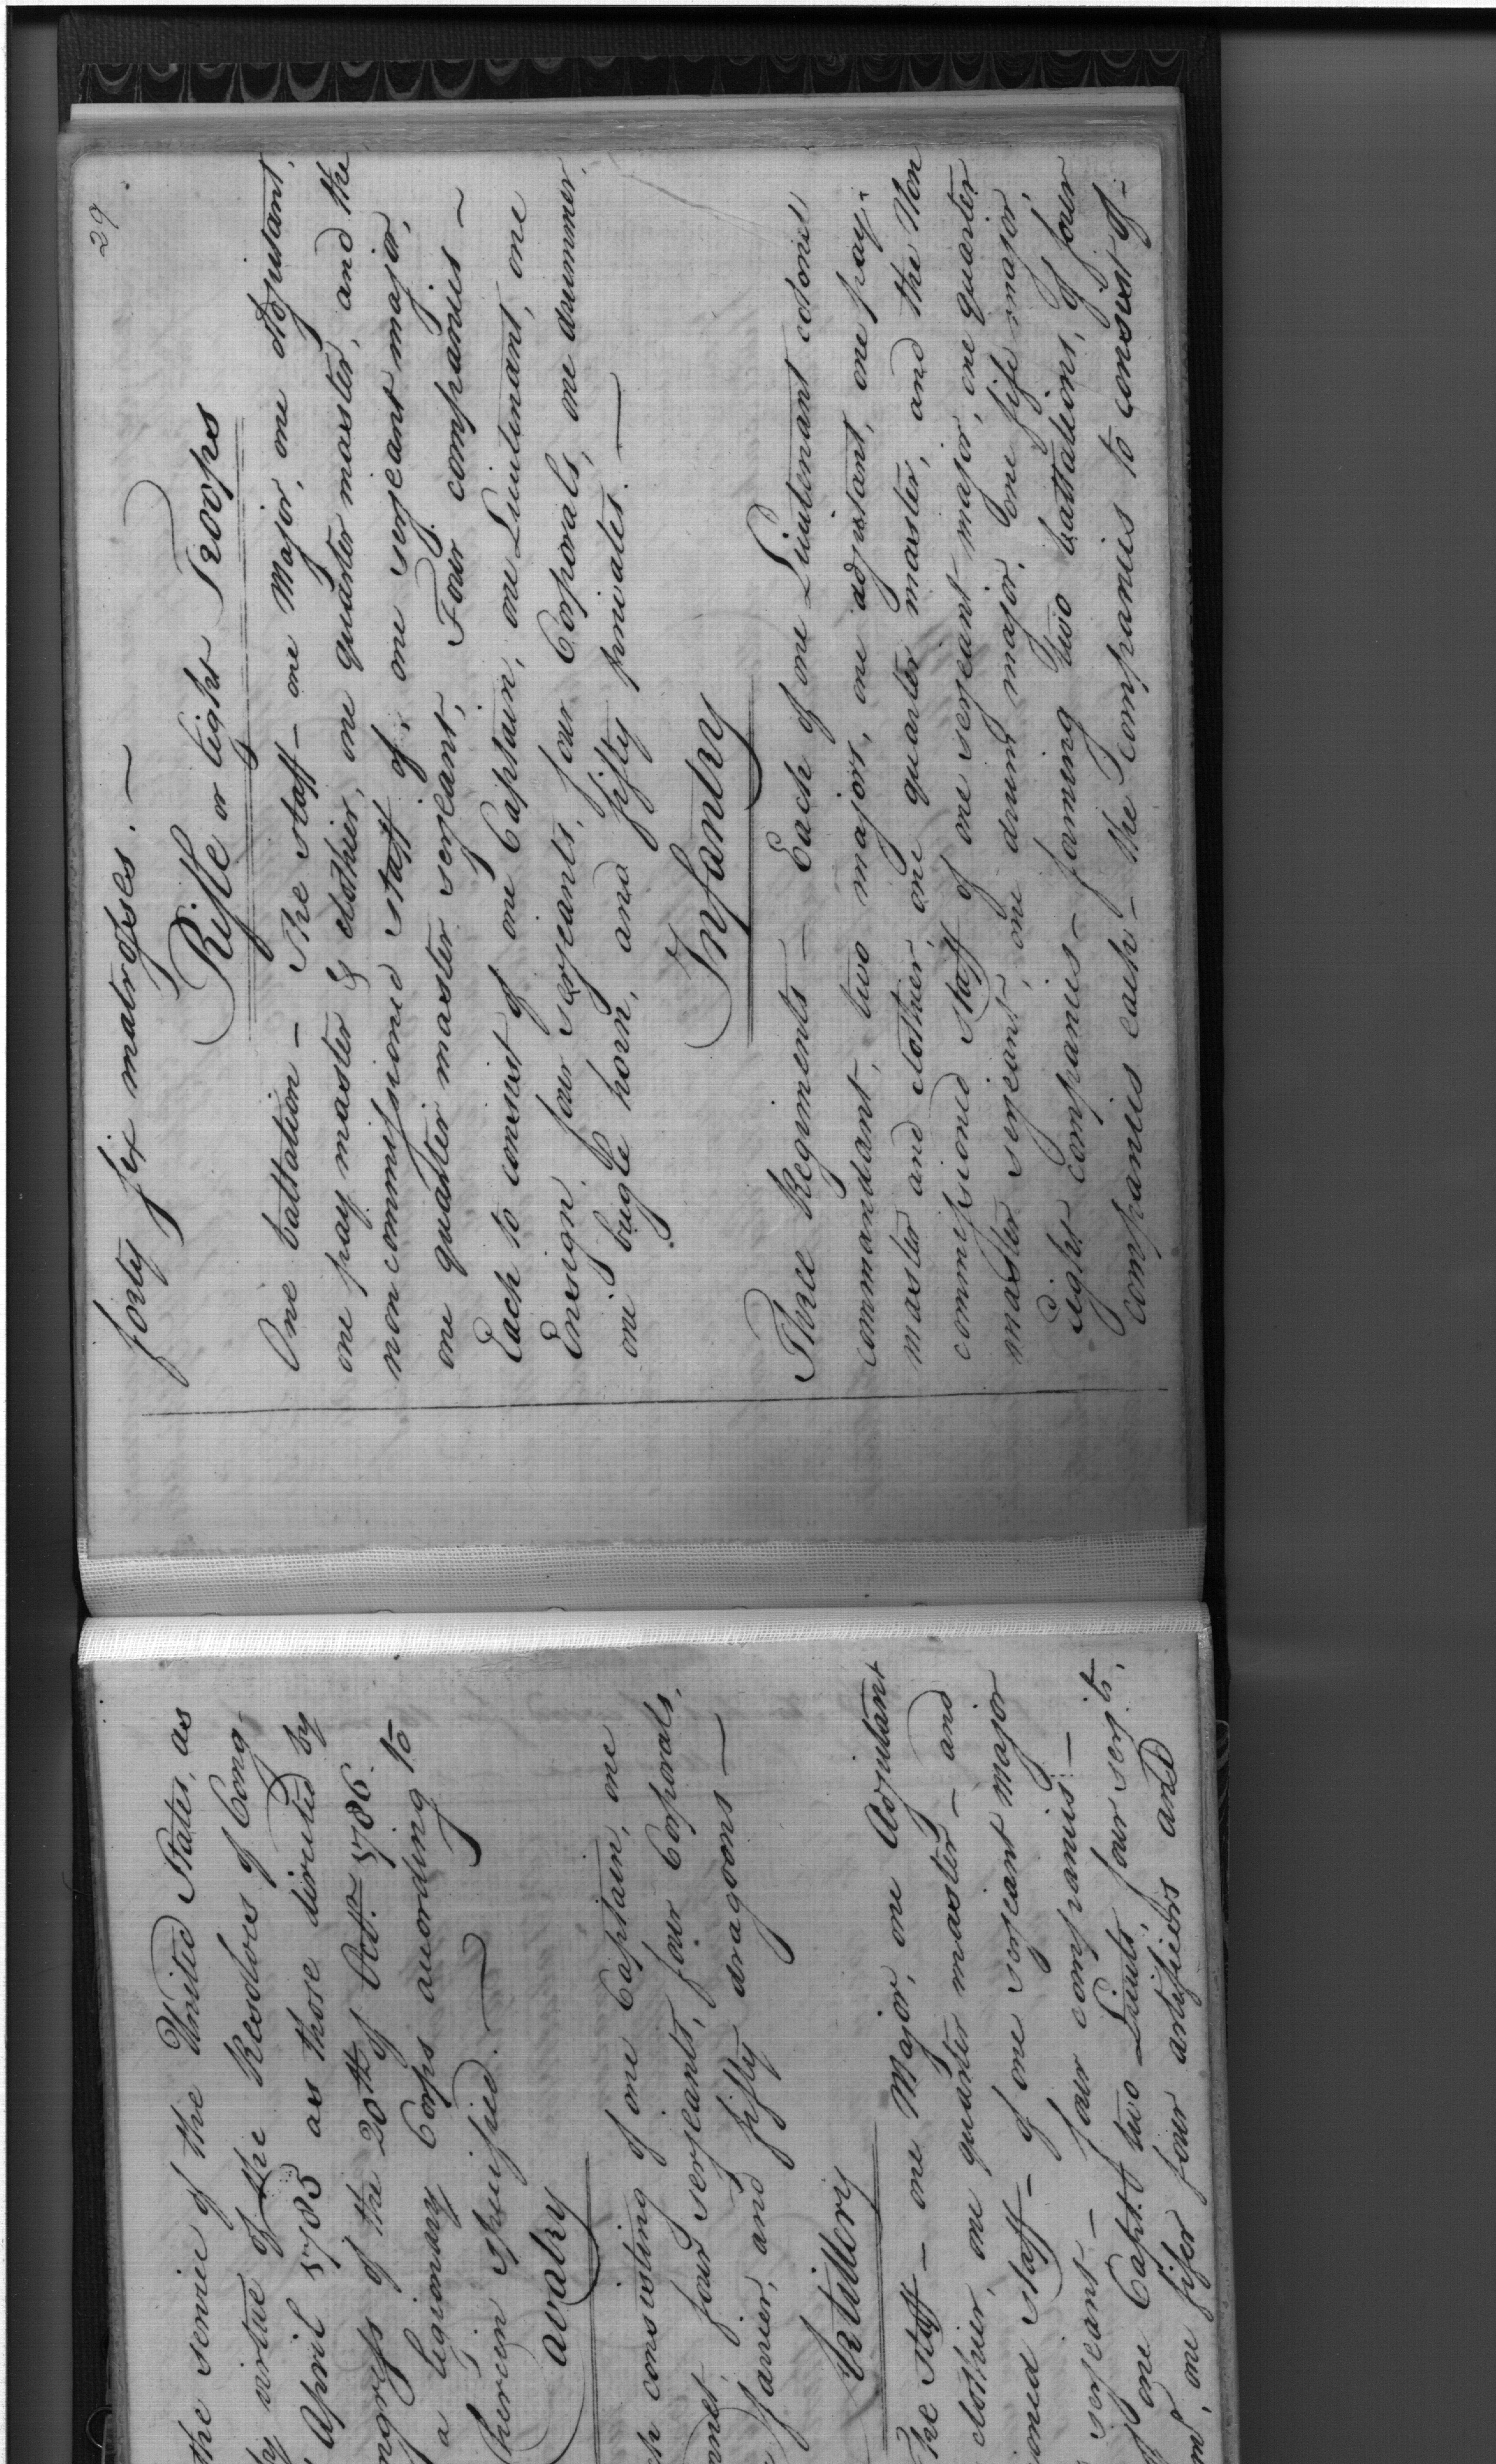 the service of the United States, as
by virtue of the Resolves of Cong-
April 1785 as those directed by
ngress of the 20th of Octr. 1786.
a legionary Corps according to
herein specified. —
avalry
ch consisting of one Captain, one
rnet, four serjeants, four Corporals,
farrier, and fifty dragoons —
Artillery
The staff — one Major, one Adjutant
clothier, one quarter master — and
ioned staff — of one serjeant major
serjeant — four companies —
of one Captt. two Lieuts. four serjts.
one fifer four artificers and
29
forty six matrosses. —
Rifle or light Troops
One battalion — The staff — one Major, one Adjutant,
one pay master & clothier, one quarter master, and the
non commissioned staff of, one serjeant major,
one quarter master serjeant, Four companies —
Each to consist of one Captain, one Lieutenant, one
Ensign, four serjeants, four Corporals, one drummer,
one bugle horn, and fifty privates. —
Infantry
Three Regiments — Each of one Lieutenant colonel
commandant, two majors, one adjutant, one pay-
master and clothier, one quarter master, and the Non
commissioned staff of one serjeant major, one quarter
master serjeant, one drum major, one fife major,
Eight companies — forming two battalions, of four
companies each — the Companies to consist of -